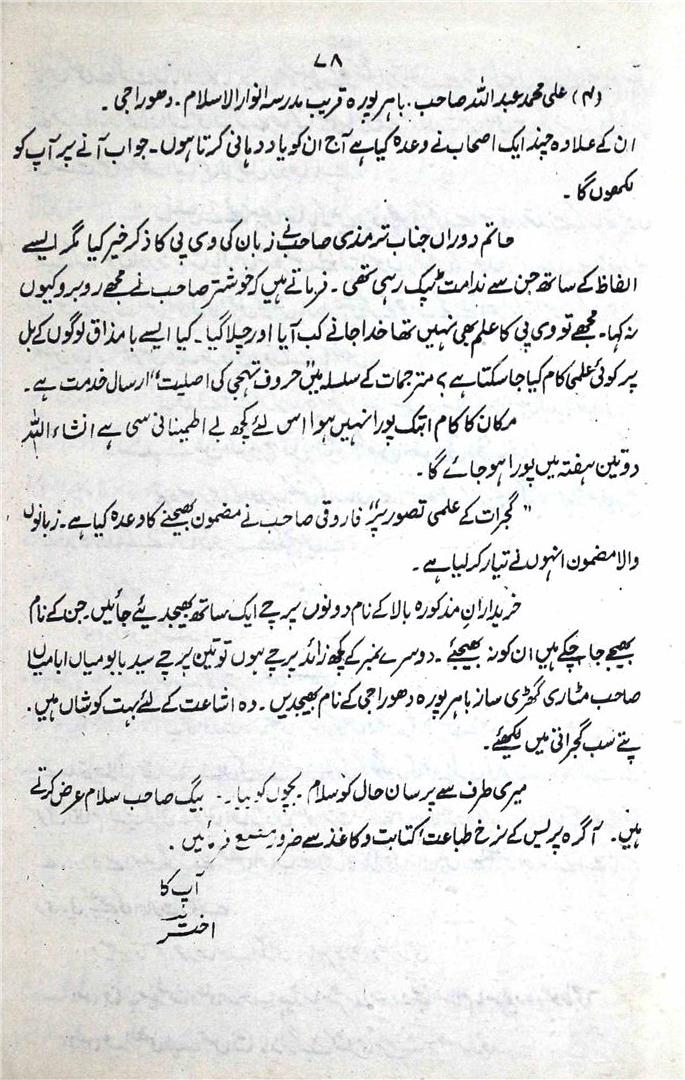 ۷۸
(۴) علی محمد عبد اللہ صاحب. باہر پورہ قریب مدرسہ انوار الاسلام. دھوراجی.
ان کے علاوہ چند ایک اصحاب نے وعدہ کیا ہے آج ان کو یاد دہانی کرتا ہوں۔ جواب آنے پر آپ کو
لکھوں گا۔
حاتم دوراں جناب ترمذی صاحب نے زبان کی وی پی کا ذکر خیر کیا مگر ایسے
الفاظ کے ساتھ جن سے ندامت ٹپک رہی تھی۔ فرماتے ہیں کہ خوشتر صاحب نے مجھے روبرو کیوں
نہ کہا۔ مجھے تو وی پی کا علم بھی نہیں تھا خدا جانے کب آیا اور چلا گیا۔ کیا ایسے بامذاق لوگوں کے بل
پر کوئی علمی کام کیا جا سکتا ہے؟ مترجمات کے سلسلہ میں "حروف تہجی کی اصلیت" ارسال خدمت ہے۔
مکان کا کام ابتک پورا نہیں ہوا اس لئے کچھ بے اطمینانی سی ہے انشاء اللہ
دو تین ہفتہ میں پورا ہو جائے گا۔
"گجرات کے علمی تصور پر" فاروقی صاحب نے مضمون بھیجنے کا وعدہ کیا ہے۔ زبانوں
والا مضمون انہوں نے تیار کر لیا ہے۔
خریداران مذکورہ بالا کے نام دونوں پرچے ایک ساتھ بھیجدیئے جائیں. جن کے نام
بھیجے جا چکے ہیں ان کو نہ بھیجئے۔ دوسرے نمبر کے کچھ زائد پرچے ہوں تو تین پرچے سید بابو میاں ابا میاں
صاحب مٹاری گھڑی ساز باہر پورہ دھوراجی کے نام بھیجدیں۔ وہ اشاعت کے لئے بہت کوشاں ہیں.
پتے سب گجراتی میں لکھئے۔
میری طرف سے پرسان حال کو سلام. بچوں کو پیار. بیگ صاحب سلام عرض کرتے
ہیں۔ آگرہ پریس کے نرخ طباعت کتابت و کاغذ سے ضرور مطلع فرمائیں.
آپ کا
اختر